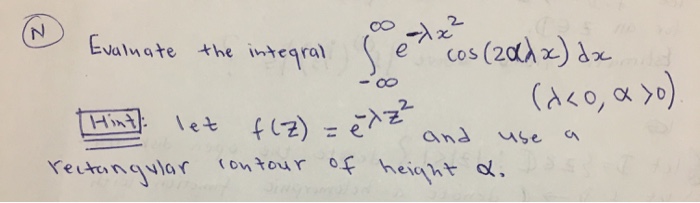 (N) Evaluate the integral ∫_{-∞}^{∞} e^{-λx²} cos(2αλx) dx
(λ<0, α>0).
Hint: let f(z) = e^{-λz²} and use a
rectangular contour of height α.